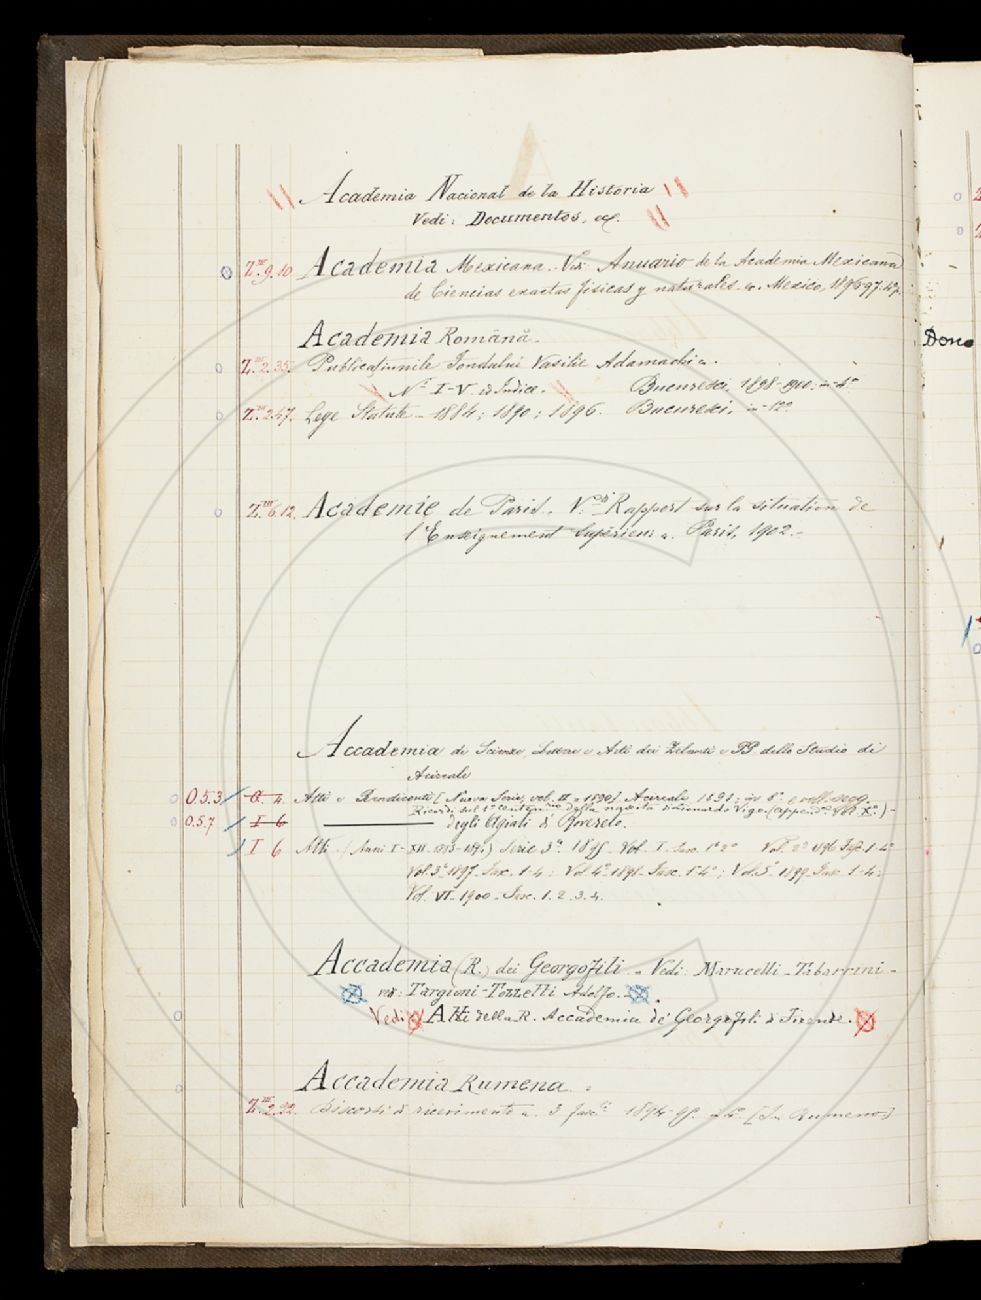 Academia Nacional de la Historia
Vedi: Documentos, ec.
Z.III.9.10 Academia Mexicana. Vedi Anuario de la Academia Mexicana
de Ciencias exactas físicas y naturales. Mexico, 1895-97.
Academia Română.
Z.III.2.35. Publicațiunile Fondului Vasilie Adamachi
Nri I-V ed Indice. Bucuresci, 1898-1900; in-4º
Z.III.2.47. Lege Statute - 1884; 1890; 1896. Bucuresci, in-12º.
Z.III.6.12. Academie de Paris. V. Rapport sur la situation de
l'Enseignement Supérieur. Paris, 1902.-
Accademia di Scienze, Lettere e Arti dei Zelanti e PP dello Studio di
Acireale
0.5.3 4. Atti e Rendiconti [Nuova Serie, vol. II - 1890] Acireale, 1891; in 8º
Ricordi del 1º centenario della nascita di Lionardo Vigo (append.
0.5.7 I 6 degli Agiati di Rovereto.
I 6 Atti. (Anni I-XII. Serie 3ª 1895 Vol. I. fasc. 1º 2º Vol. 2º 1896 fasc. 1-4º
Vol. 3º 1897. fasc. 1-4; Vol. 4º 1898. fasc. 1-4º; Vol. 5º 1899. fasc. 1-4;
Vol. VI - 1900 - fasc. 1. 2. 3. 4.
Accademia (R.) dei Georgofili - Vedi: Marucelli - Tabarrini -
Targioni-Tozzetti Adolfo.
Vedi Atti della R. Accademia dei Georgofili di Firenze.
Accademia Rumena.
Z.III.2.22. Discorsi di ricevimento 3 fascli 1894 in 8º [In Rumeno]
Dono